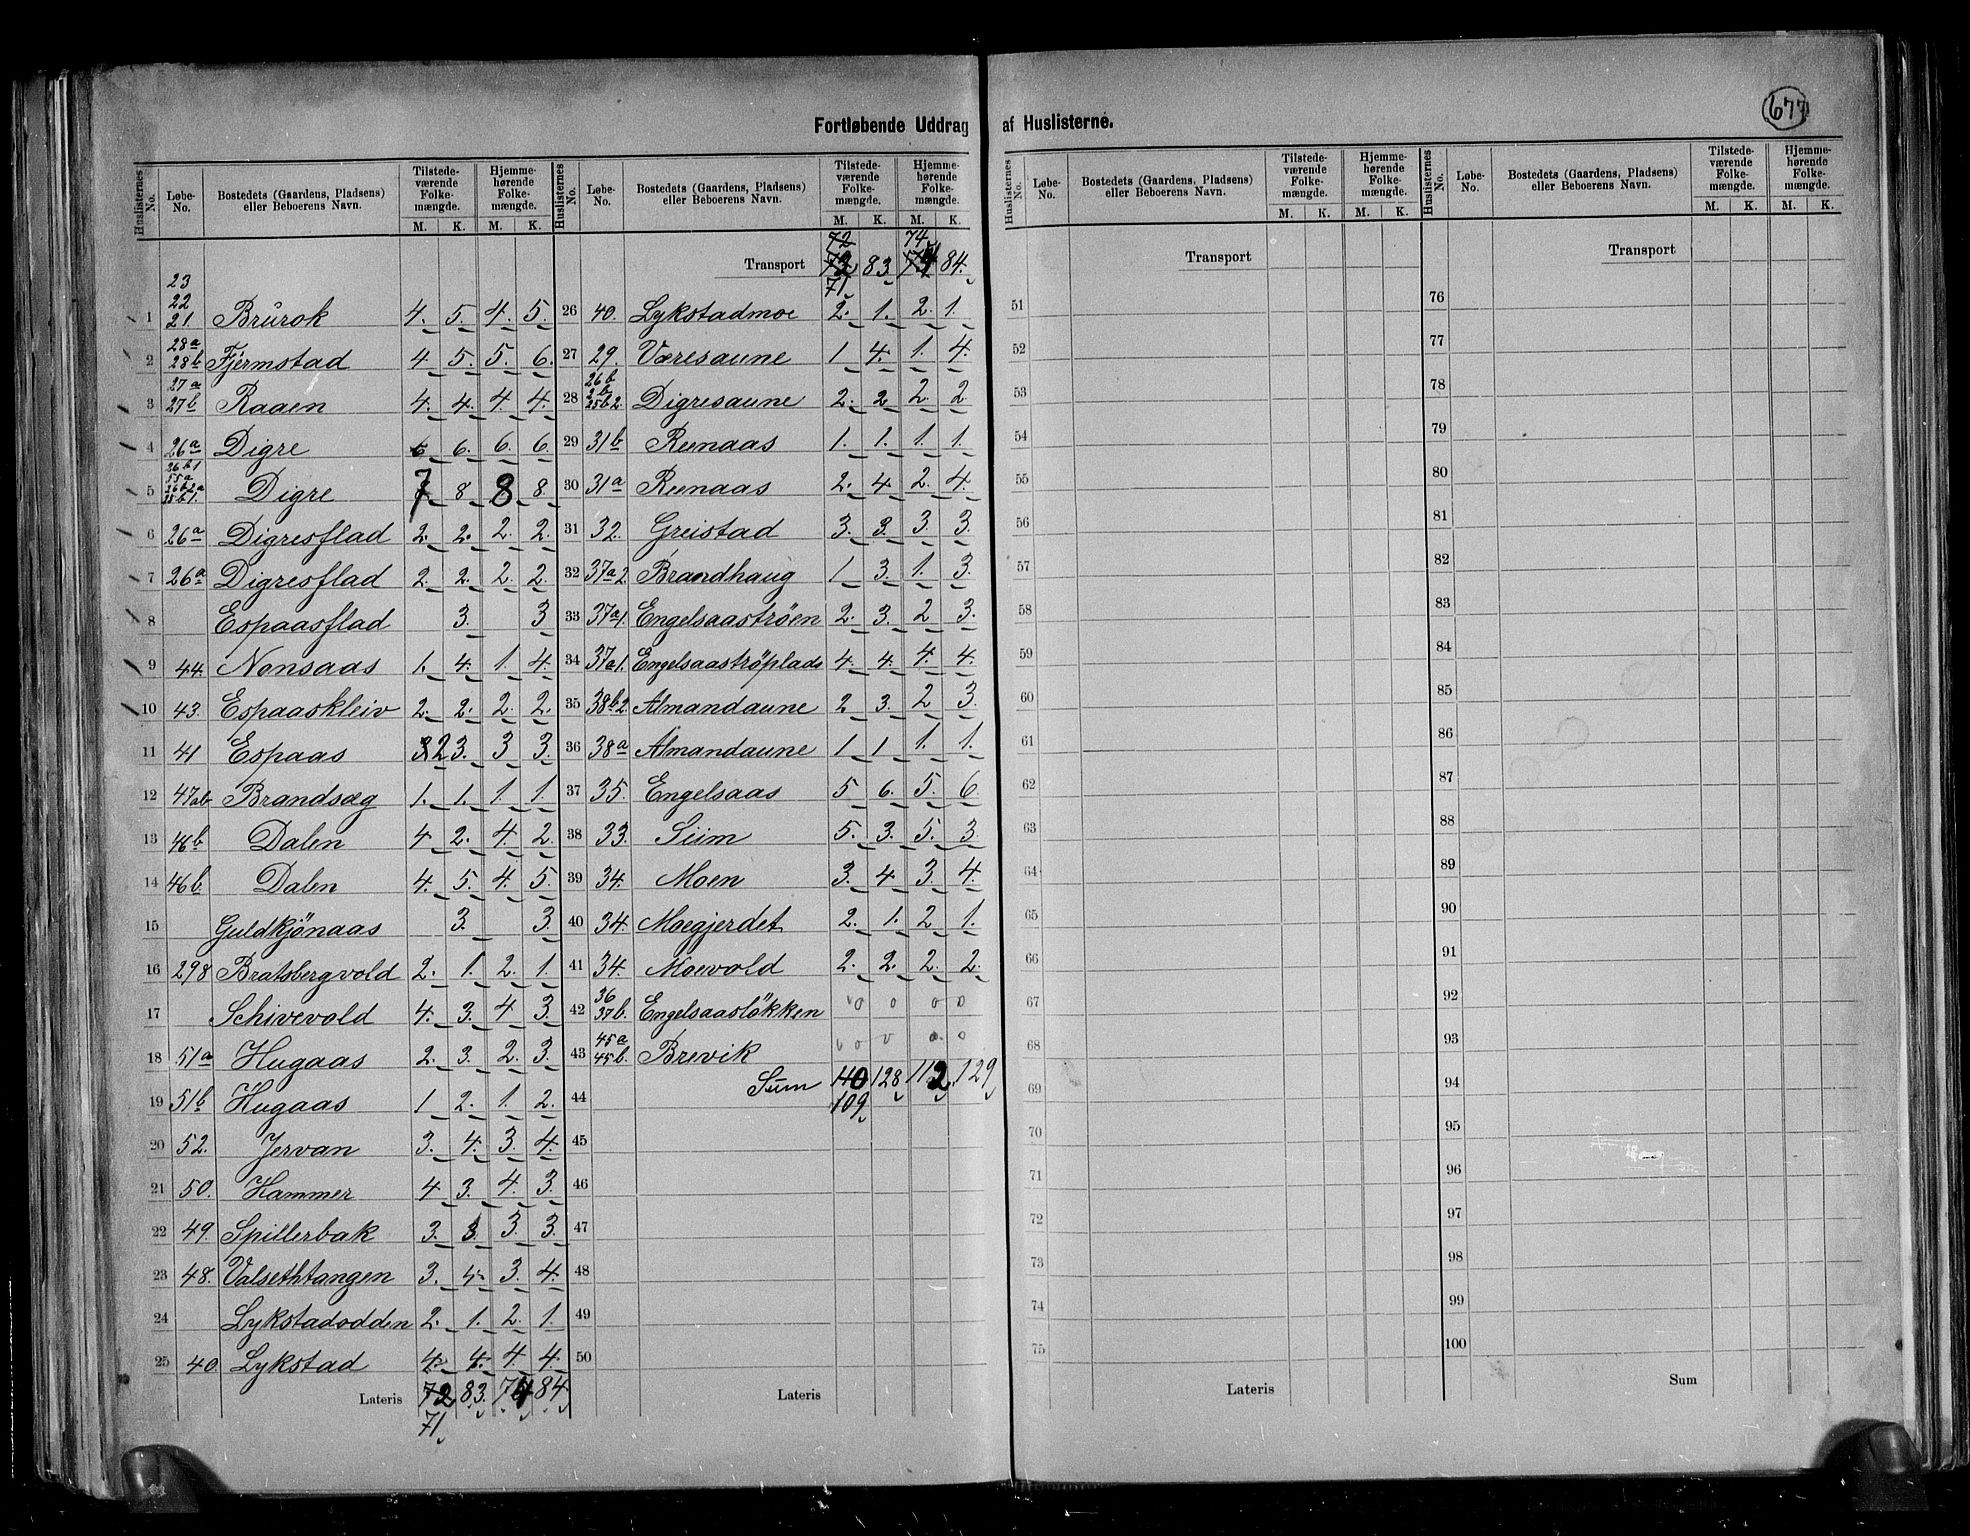 Fortløbende Uddrag af Huslisterne.
677
Huslisternes No. | Løbe-No. | Bostedets (Gaardens, Pladsens) eller Beboerens Navn. | Tilstedeværende Folkemængde. M. K. | Hjemmehørende Folkemængde. M. K.
1 | 23 22 21. | Brūrok | 4. | 5. | 4. | 5.
2 | 28a 28b | Fjermstad | 4 | 5. | 5. | 6.
3 | 27a 27b | Raaen | 4. | 4. | 4. | 4.
4 | 26a | Digre | 6 | 6. | 6. | 6.
5 | Digre | 7 | 8 | 8 | 8.
6 | 26a | Digresflad | 2. | 2. | 2. | 2.
7 | 26a | Digresflad | 2. | 2. | 2. | 2.
8 | Espaasflad | 3. | 3
9 | 44. | Nonsaas | 1. | 4. | 1. | 4.
10 | 43. | Espaaskleiv | 2. | 2. | 2. | 2.
11 | 41 | Espaas | 32 | 3. | 3 | 3.
12 | 47ab | Brandsæg | 1. | 1. | 1. | 1.
13 | 46b | Dalen | 4 | 2. | 4. | 2.
14 | 46b. | Dalen | 4. | 5. | 4. | 5.
15 | Guldkjönaas | 3. | 3.
16 | 298 | Bratsbergvold | 2. | 1. | 2. | 1.
17 | Schivevold | 4. | 3. | 4 | 3.
18 | 51a | Hugaas | 2. | 3. | 2. | 3.
19 | 51b | Hugaas | 1 | 2. | 1. | 2.
20 | 52. | Jervan | 3. | 4. | 3. | 4.
21 | 50. | Hammer | 4 | 3. | 4. | 3.
22 | 49. | Spillerbak | 3. | 3. | 3. | 3.
23 | 48. | Valsethtangen | 3. | 4. | 3. | 4.
24 | Lykstadodden | 2. | 1. | 2. | 1.
25 | 40. | Lykstad | 4. | 4. | 4. | 4.
Lateris | 72 | 83. | 74 | 84
71
Huslisternes No. | Løbe-No. | Bostedets (Gaardens, Pladsens) eller Beboerens Navn. | Tilstedeværende Folkemængde. M. K. | Hjemmehørende Folkemængde. M. K.
72 74
Transport | 83. | 84.
71
26 | 40. | Lykstadmoe | 2. | 1. | 2. | 1.
27 | 29. | Væresaune | 1 | 4. | 1. | 4.
28 | 26b 25b2. | Digresaune | 2. | 2 | 2 | 2
29 | 31b | Reenaas | 1. | 1. | 1. | 1.
30 | 31a | Reenaas | 2. | 4. | 2. | 4.
31 | 32. | Greistad | 3. | 3. | 3. | 3.
32 | 37a2 | Brandhaug | 1 | 3. | 1. | 3.
33 | 37a1. | Engelsaastrøen | 2. | 3. | 2 | 3.
34 | 37a1. | Engelsaastrøplads | 4. | 4. | 4. | 4.
35 | 38b2. | Almandaune | 2 | 3. | 2 | 3.
36 | 38a | Almandaune | 1 | 1 | 1. | 1.
37 | 35. | Engelsaas | 5 | 6. | 5. | 6.
38 | 33. | Siim | 5. | 3. | 5. | 3.
39 | 34. | Moen | 3. | 4 | 3. | 4.
40 | 34. | Moegjerdet | 2. | 1. | 2 | 1.
41 | 34. | Moevold | 2. | 2. | 2. | 2.
42 | 36 37b. | Engelsaasløkken | 0 | 0 | 0 | 0
43 | 45a 45b. | Brevik | 0 | 0 | 0 | 0
Sum | 110 | 128 | 112. | 129
44 | 109
45
46
47
48
49
50
Lateris
Huslisternes No. | Løbe-No. | Bostedets (Gaardens, Pladsens) eller Beboerens Navn. | Tilstedeværende Folkemængde. M. K. | Hjemmehørende Folkemængde. M. K.
Transport
51
52
53
54
55
56
57
58
59
60
61
62
63
64
65
66
67
68
69
70
71
72
73
74
75
Lateris
Huslisternes No. | Løbe-No. | Bostedets (Gaardens, Pladsens) eller Beboerens Navn. | Tilstedeværende Folkemængde. M. K. | Hjemmehørende Folkemængde. M. K.
Transport
76
77
78
79
80
81
82
83
84
85
86
87
88
89
90
91
92
93
94
95
96
97
98
99
100
Sum